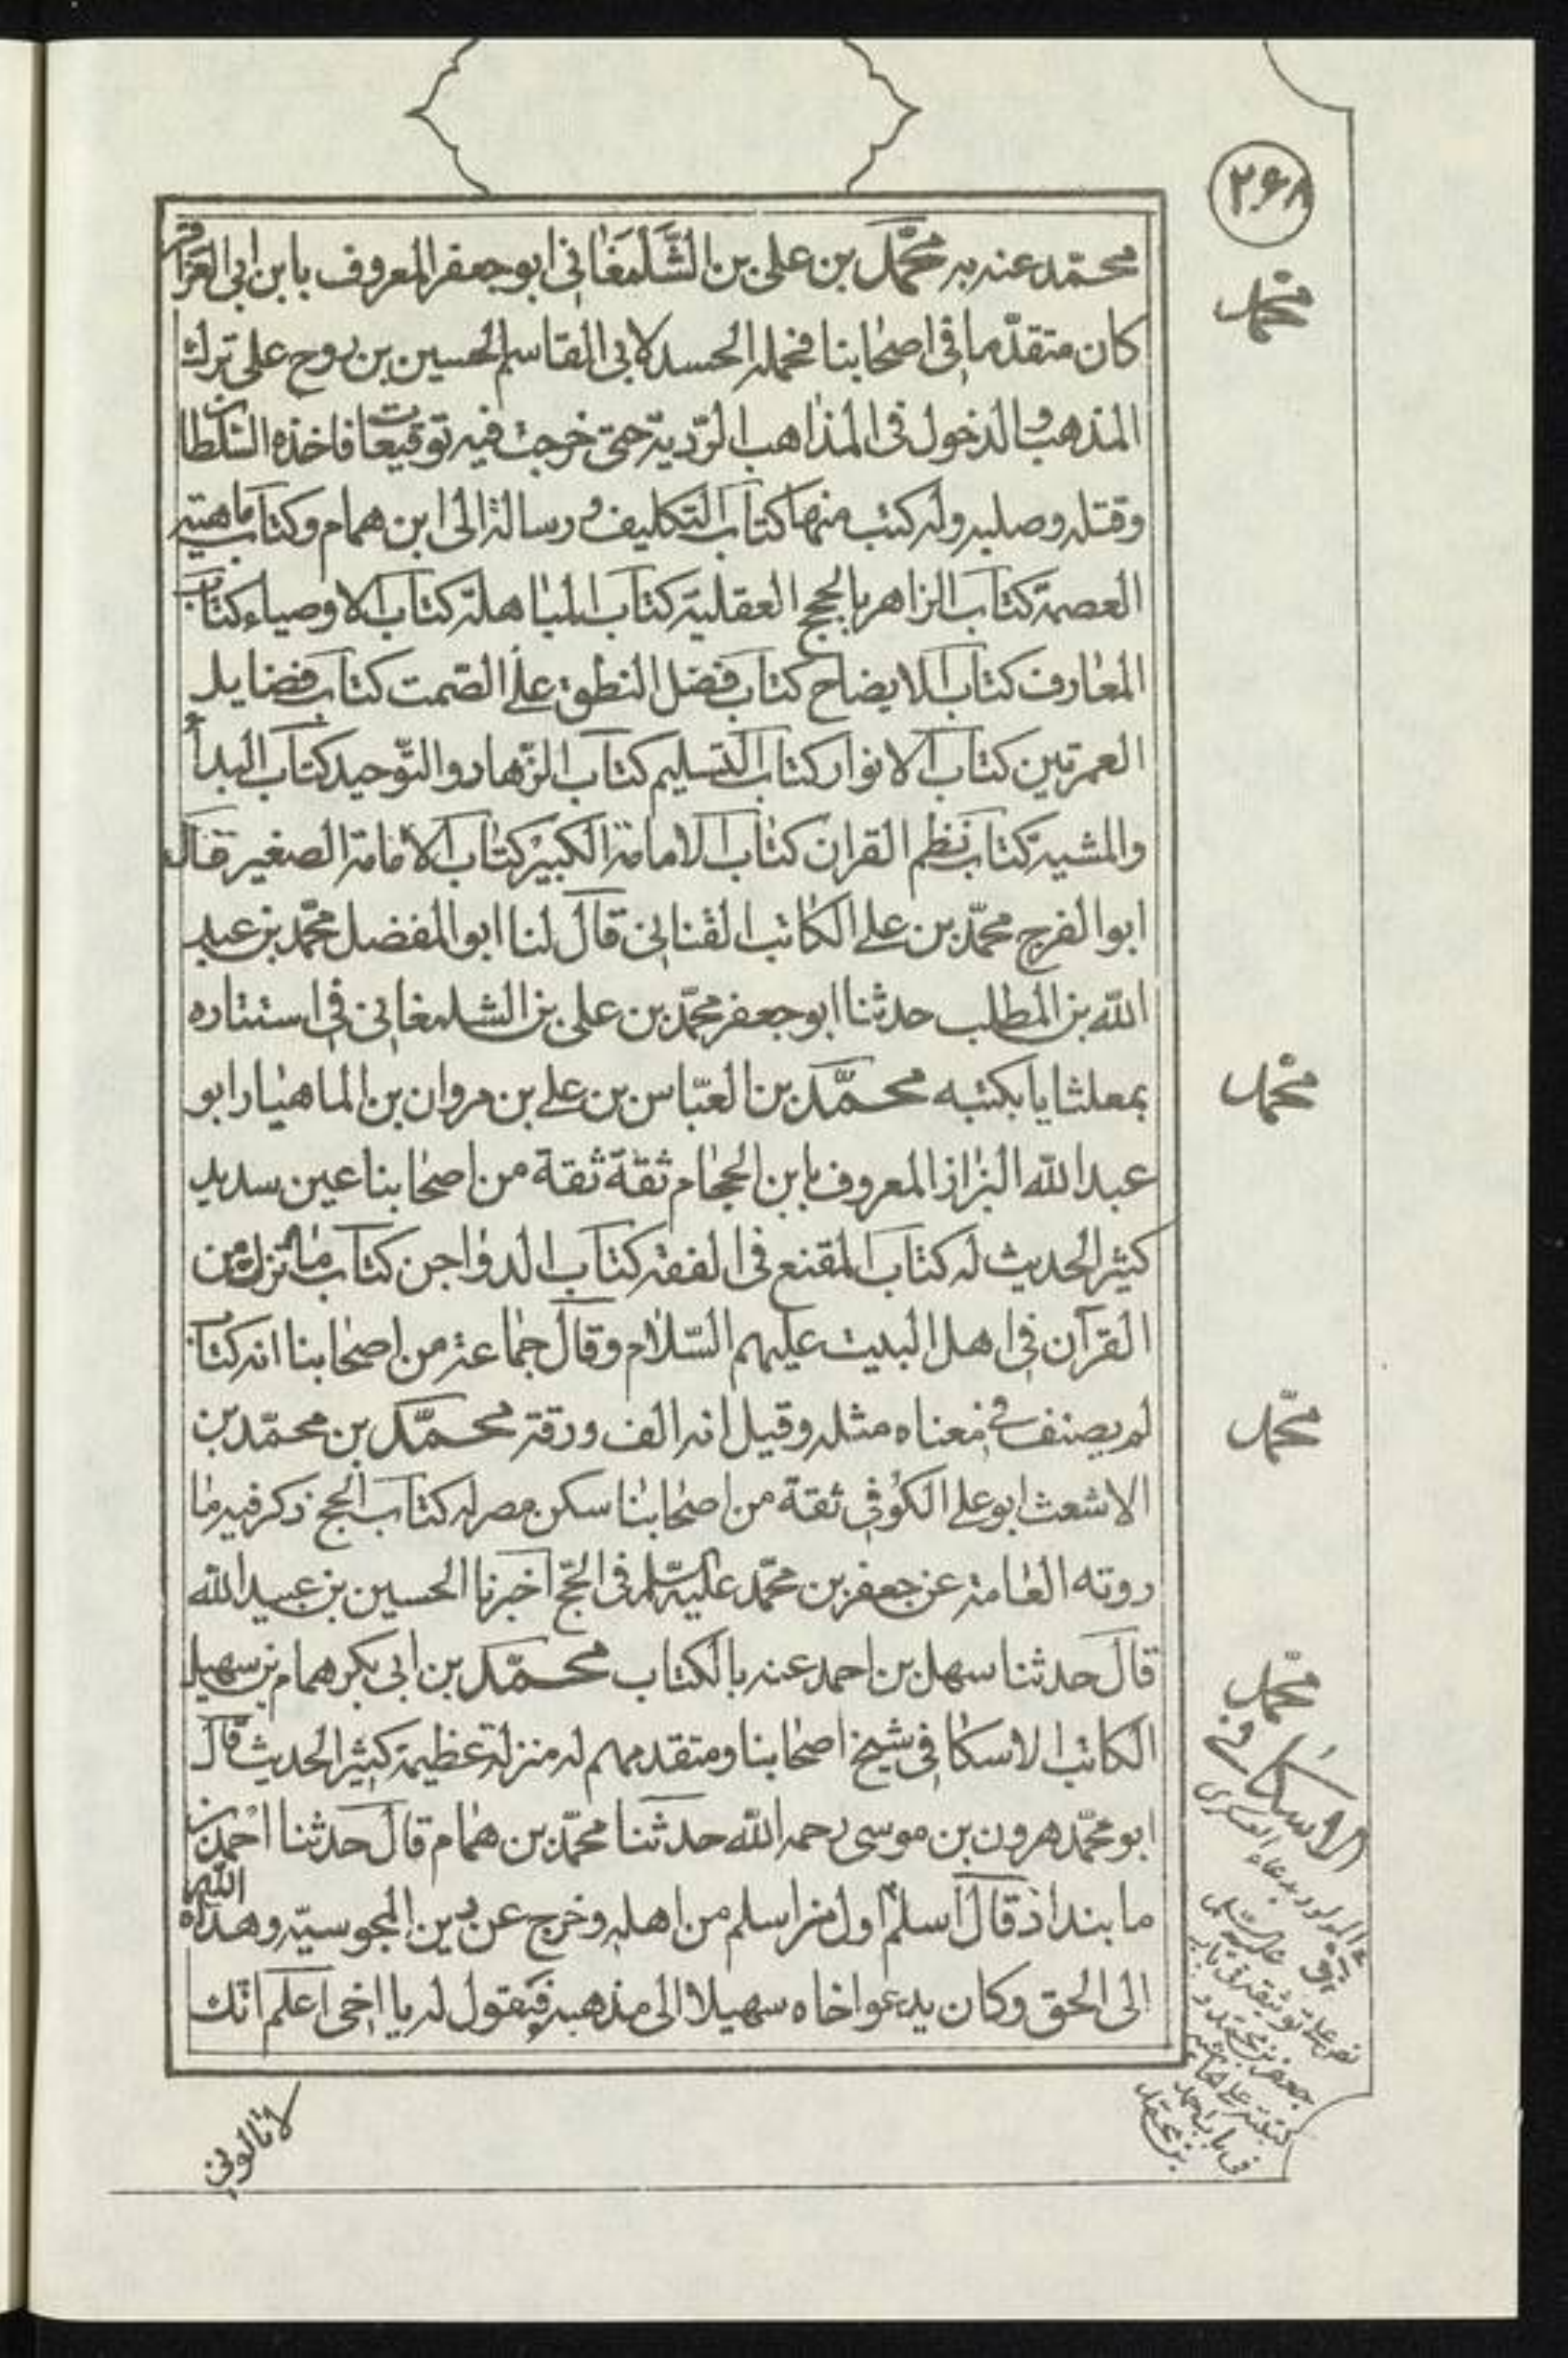 ۲۶۸
محمّد عنه به محمّد بن على بن الشَّلْمَغٰانى ابو جعفر المعروف بابن ابى العزاقر
كان متقدّما فى اصحٰابنا فحمله الحسد لابى القاسم الحسين بن روح على ترك
المذهب والدخول فى المذٰاهب الرّديّة حتى خرجت فيه توقيعات فاخذه السّلطان
وقتله وصلبه وله كتب منها كتاب التكليف ورسالة الى ابن همام وكتاب ماهيّة
العصمة كتاب الزاهر بالحجج العقلية كتاب المباهلة كتاب الاوصياء كتاب
المعٰارف كتاب الايضاح كتاب فضل النطق على الصّمت كتاب فضايل
العمرتين كتاب الانوار كتاب التسليم كتاب الزّهاد والتّوحيد كتاب البداء
والمشية كتاب نظم القران كتاب الامامة الكبير كتاب الامامة الصغير قال
ابو الفرج محمّد بن على الكاتب القنانى قال لنا ابو المفضل محمّد بن عبد
الله بن المطلب حدثنا ابو جعفر محمّد بن على بن الشلمغانى فى استتاره
بمعلثايا بكتبه محمّد بن العبّاس بن على بن مروان بن الماهيار ابو
عبد الله البزاز المعروف بابن الحجام ثقة ثقة من اصحٰابنا عين سديد
كثير الحديث له كتاب المقنع فى الفقه كتاب الدواجن كتاب ما نزل من
القرآن فى اهل البيت عليهم السّلام وقال جماعة من اصحٰابنا انه كتاب
لم يصنف فى معناه مثله وقيل انه الف ورقة محمّد بن محمّد بن
الاشعث ابو على الكوفى ثقة من اصحٰابنا سكن مصر له كتاب الحج ذكر فيه ما
روته العٰامة عن جعفر بن محمّد عليه السّلم فى الحجّ اخبرنا الحسين بن عبيد الله
قال حدثنا سهل بن احمد عنه بالكتاب محمّد بن ابى بكر همام بن سهيل
الكاتب الاسكافى شيخ اصحٰابنا ومتقدمهم له منزلة عظيمة كثير الحديث قال
ابو محمّد هرون بن موسى رحمه الله حدثنا محمّد بن همام قال حدثنا احمد بن
ما بنداذ قال اسلم اول من اسلم من اهله وخرج عن دين المجوسيّة وهداه الله
الى الحق وكان يدعوا خاه سهيلا الى مذهبه فيقول له يا اخى اعلم انّك
لا تالونى
محمّد
محمّد
محمّد
محمّد
الاسكافى
المولود بدعاء العسكرى
عليه السّلم
نص على توثيقه فى باب
جعفر بن محمّد و
فى باب احمد
بن محمّد